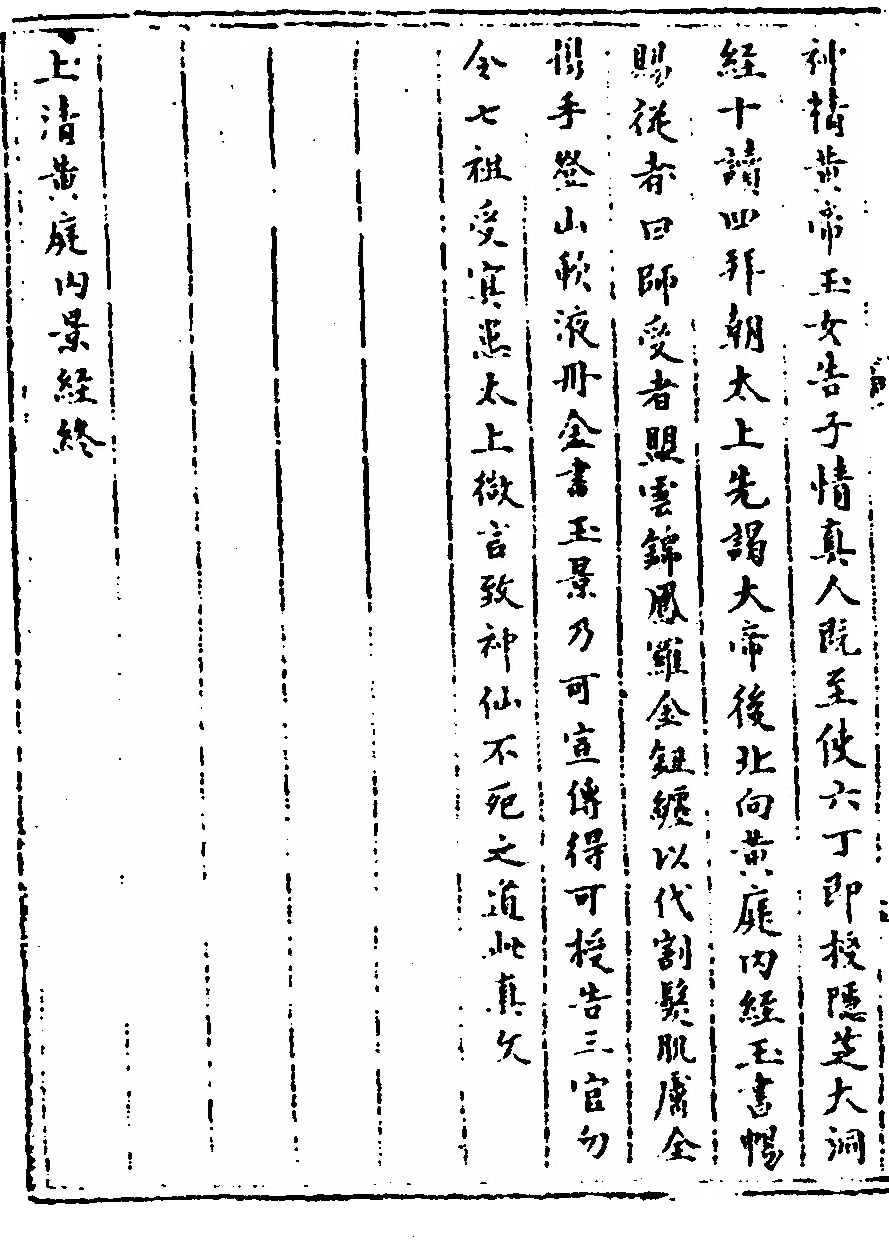 神精黄帝玉女告子情真人既至使六丁即授隱芝大洞
經十讀四拜朝太上先謁大帝後北向黄庭内經玉書暢
賜從者曰師受者盟雲錦鳳羅金鈕纏以代割髮肌膚全
携手登山歃液丹金書玉景乃可宣傳得可授告三官勿
令七祖受冥患太上微言致神仙不死之道此真文
上清黄庭内景經終